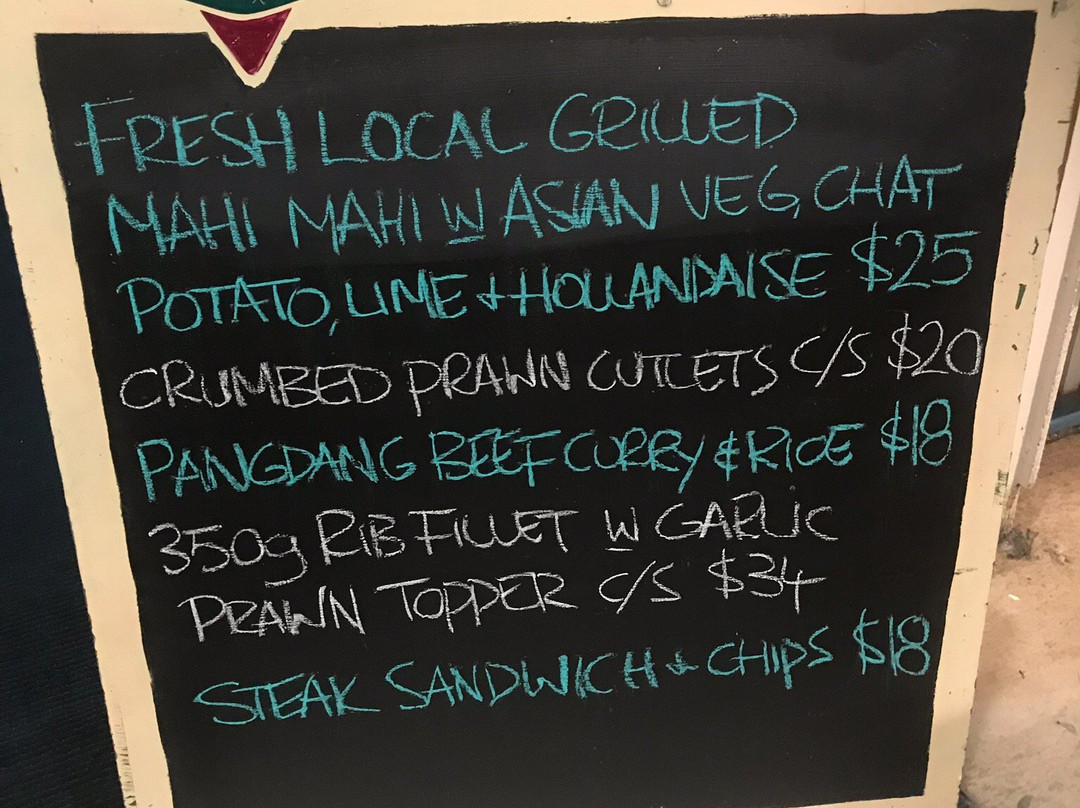 FRESH LOCAL GRILLED
MAHI MAHI W ASIAN VEG, CHAT
POTATO, LIME + HOLLANDAISE $25
CRUMBED PRAWN CUTLETS C/S $20
PANGDANG BEEF CURRY & RICE $18
350g RIB FILLET W GARLIC
PRAWN TOPPER C/S $34
STEAK SANDWICH + CHIPS $18